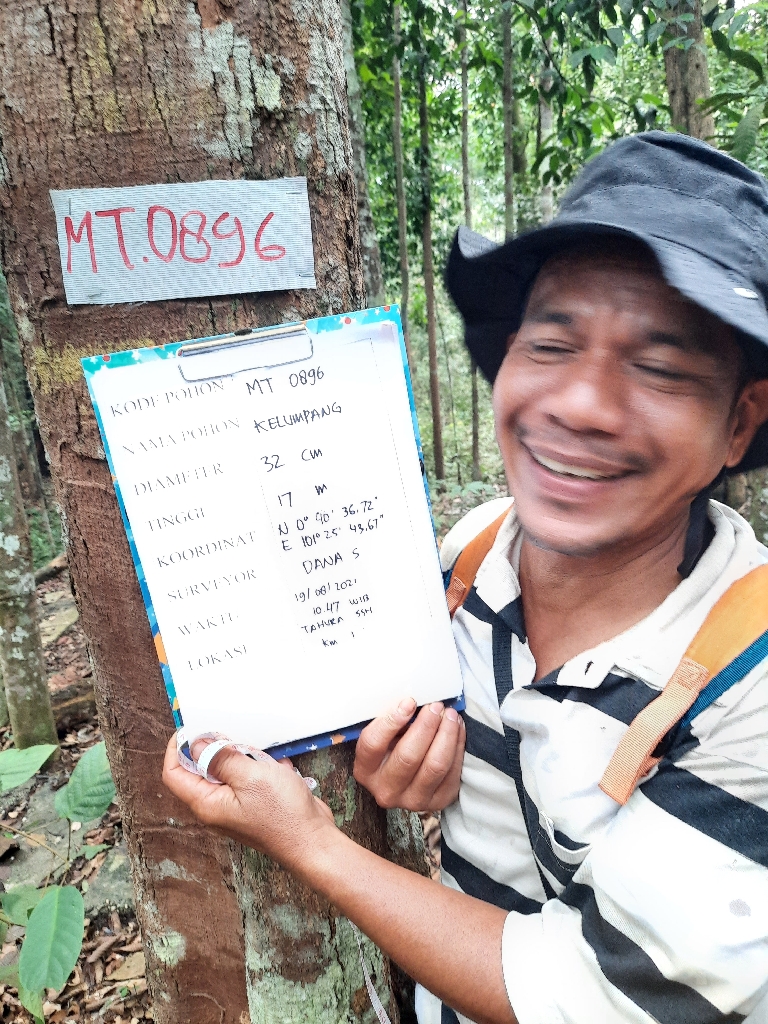 MT.0896
KODE POHON MT 0896
NAMA POHON KELUMPANG
DIAMETER 32 CM
TINGGI 17 m
KOORDINAT N 0° 40' 36.72"
E 101° 25' 43.67"
SURVEYOR DANA S
WAKTU 19/08/2021
10.47 WIB
LOKASI TAHURA SSH
Km 1